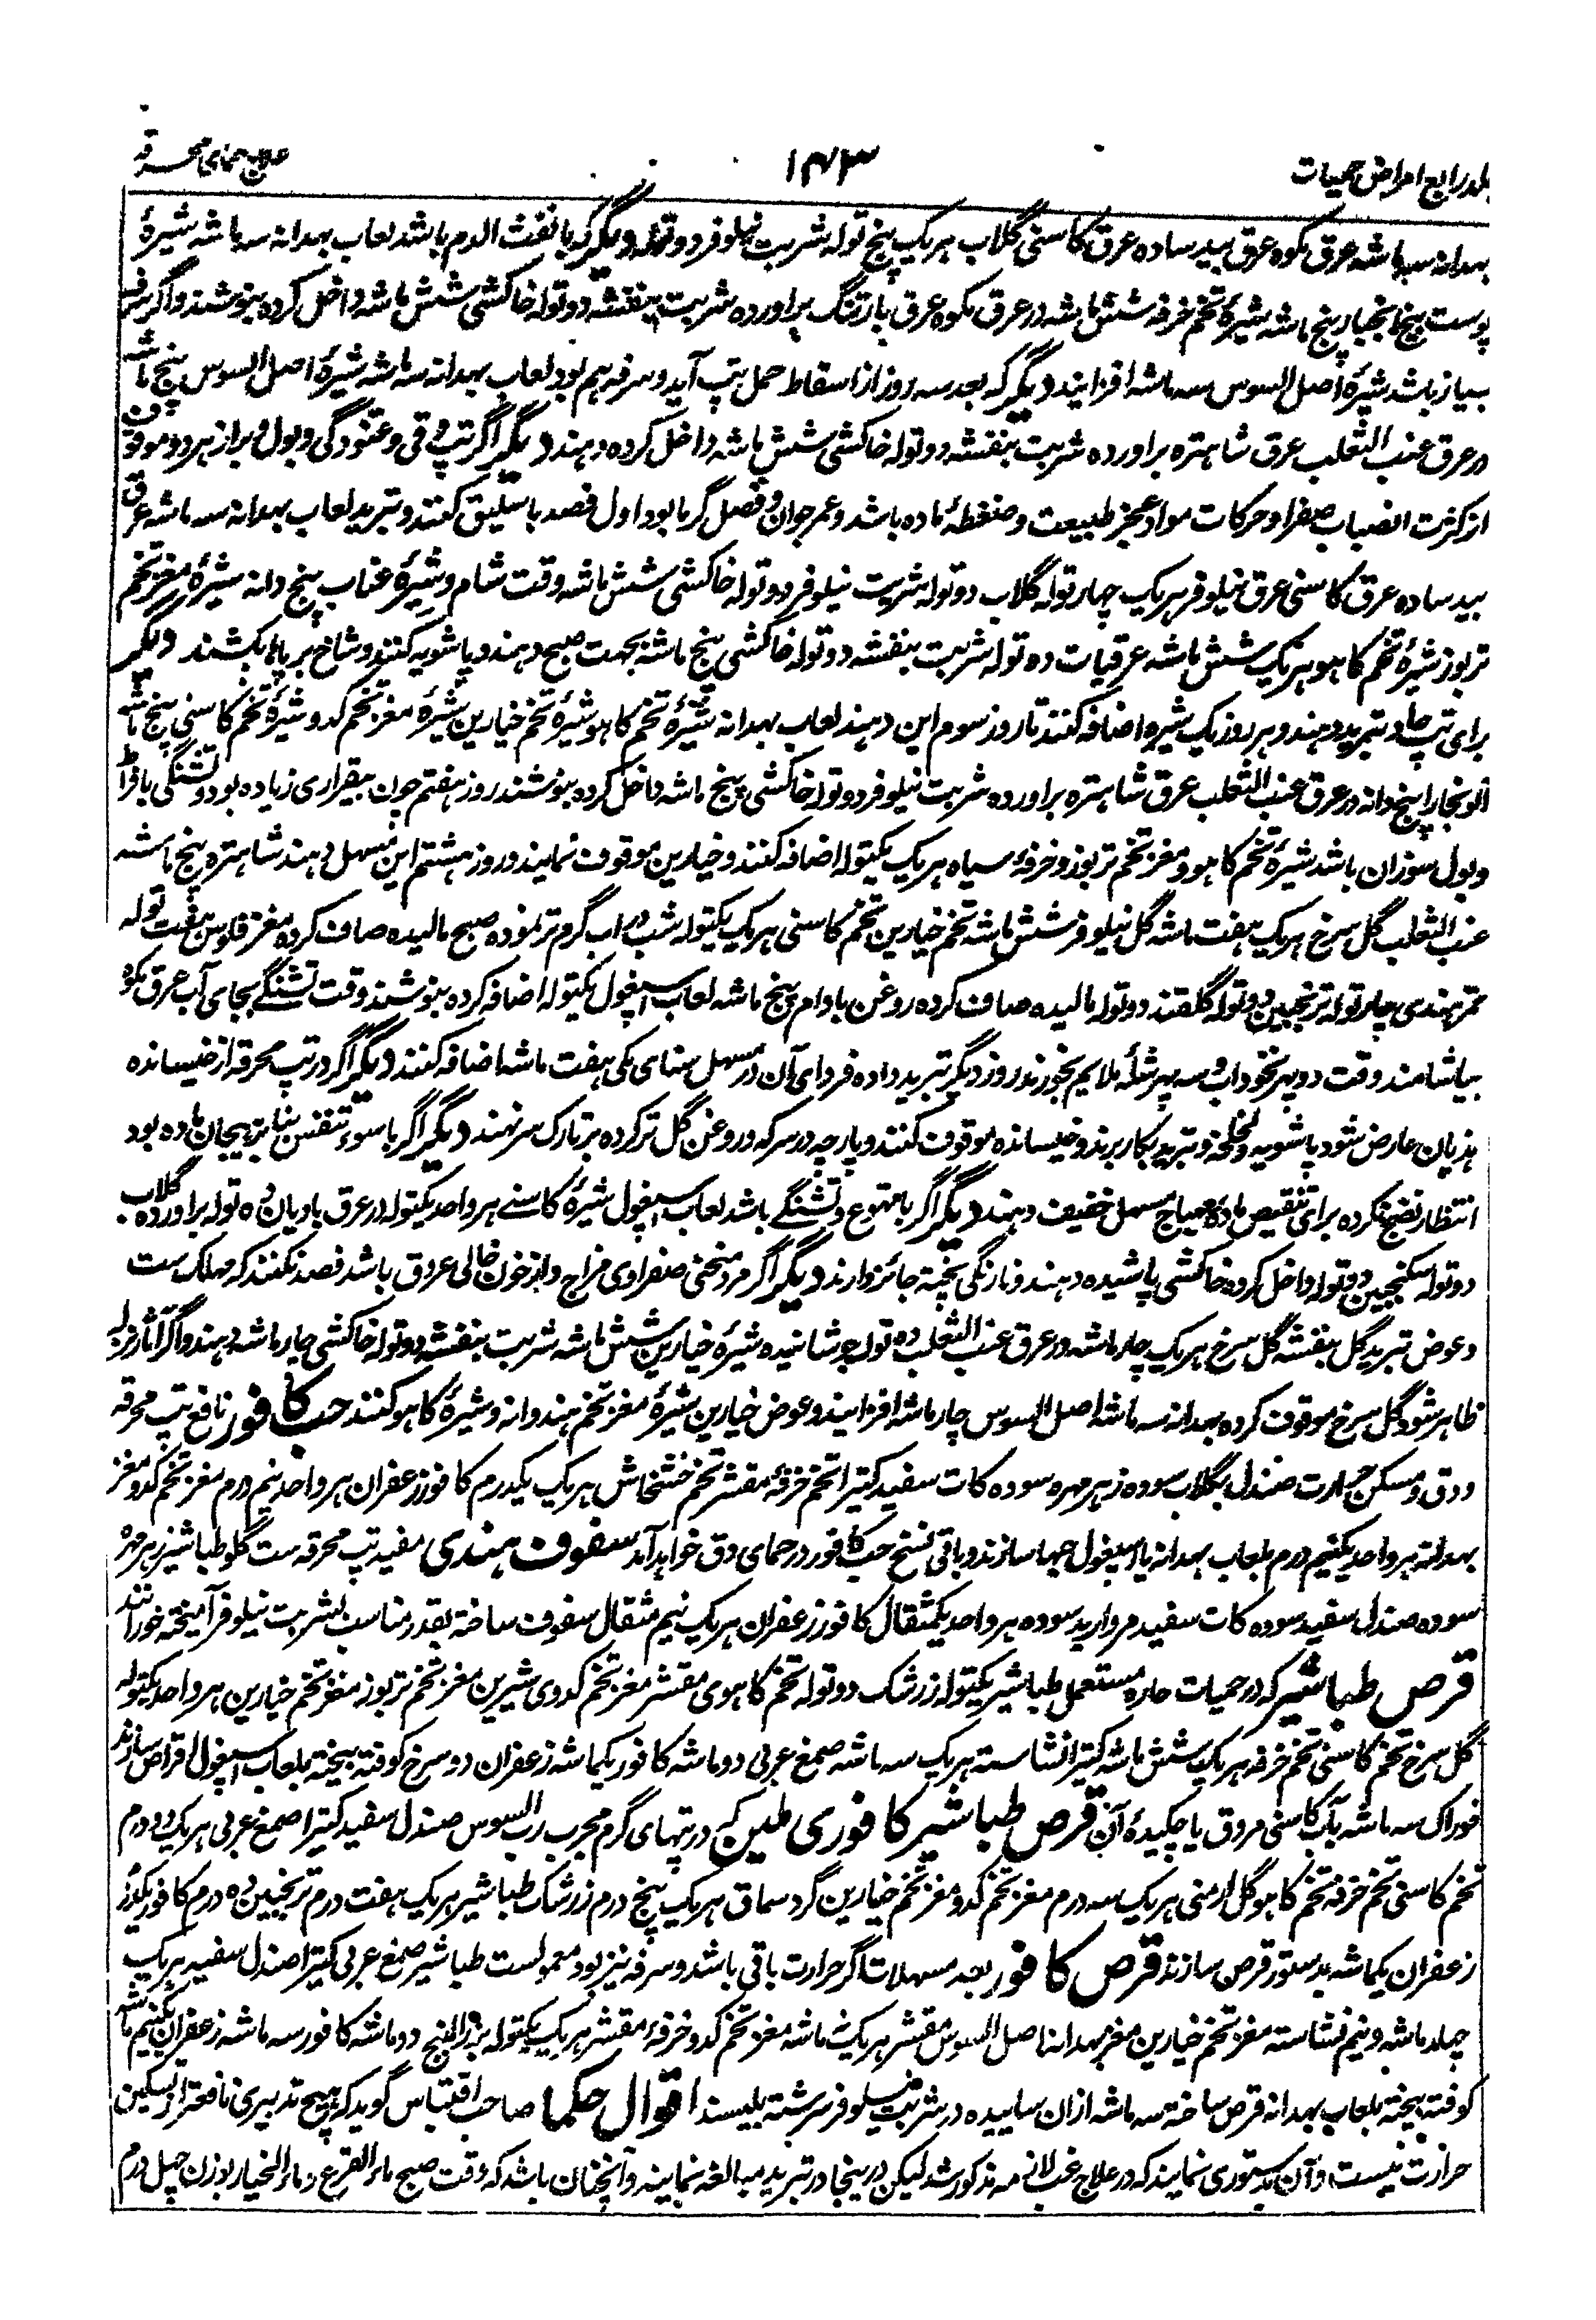 جلد رابع امراض حمیات ۱۴۳ علاج حمای محرقه
بهدانه سه ماشه عرق مکوه عرق بید ساده عرق کاسنی گلاب هر یک پنج توله شربت نیلوفر دو توله دیگر که با نفث الدم باشد لعاب بهدانه سه ماشه شیرهٔ
پوست بیخ انجبار پنج ماشه شیرهٔ تخم خرفه شش ماشه در عرق مکوه عرق بارتنگ براورده شربت بنفشه دو توله خاکشی شش ماشه داخل کرده بنوشند و اگر سرفه
بسیار باشد شیرهٔ اصل السوس سه ماشه افزایند دیگر که بعد سه روز از اسقاط حمل تپ آید و سرفه هم بود لعاب بهدانه سه ماشه شیرهٔ اصل السوس پنج ماشه
در عرق عنب الثعلب عرق شاهتره براورده شربت بنفشه دو توله خاکشی شش ماشه داخل کرده دهند دیگر اگر تپ و قی و غنودگی و بول و براز هر دو موقوف
از کثرت انصباب صفرا و حرکات مواد و عجز طبیعت و ضغطهٔ ماده باشد و عمر جوان و فصل گرما بود اول فصد باسلیق کنند و تبرید لعاب بهدانه سه ماشه عرق
بید ساده عرق کاسنی عرق نیلوفر هر یک چهار توله گلاب دو توله شربت نیلوفر دو توله خاکشی شش ماشه وقت شام و شیرهٔ عناب پنج دانه شیرهٔ مغز تخم
تربوز شیرهٔ تخم کاهو هر یک شش ماشه عرقیات ده توله شربت بنفشه دو توله خاکشی پنج ماشه بجهت صبح دهند و پاشویه کنند و شاخ بر پاها بکشند دیگر
برای تپ حاد تبرید دهند و هر روز یک شیره اضافه کنند تا روز سوم این دهند لعاب بهدانه شیرهٔ تخم کاهو شیرهٔ تخم خیارین شیرهٔ مغز تخم کدو شیرهٔ تخم کاسنی پنج ماشه
آلو بخارا پنج دانه در عرق عنب الثعلب عرق شاهتره براورده شربت نیلوفر دو توله خاکشی پنج ماشه داخل کرده بنوشند روز هفتم چون بیقراری زیاده بود و تشنگی بافراط
و بول سوزان باشد شیرهٔ تخم کاهو و مغز تخم تربوز و خرفهٔ سیاه هر یک یکتوله اضافه کنند و خیارین موقوف نمایند و روز هشتم این مسهل دهند شاهتره پنج ماشه
عنب الثعلب گل سرخ هر یک هفت ماشه گل نیلوفر شش ماشه تخم خیارین تخم کاسنی هر یک یکتوله شب در آب گرم تر نموده صبح مالیده صاف کرده مغز فلوس هفت توله
تمر هندی چار توله ترنجبین دو توله گلقند دو توله مالیده صاف کرده روغن بادام پنج ماشه لعاب اسپغول یکتوله اضافه کرده بنوشند وقت تشنگی بجای آب عرق مکوه
بیاشامند وقت دوپهر نخوداب و سه پهر شله ملایم بخورند روز دیگر تبرید داده فردای آن در مسهل سنای مکی هفت ماشه اضافه کنند دیگر اگر در تپ محرقه از خیسانده
هذیان عارض شود پاشویه و لخلخه و تبرید بکار برند و خیسانده موقوف کنند و پارچه در سرکه و روغن گل تر کرده بر تارک سر نهند دیگر اگر با سوء تنفس بنا بر هیجان ماده بود
انتظار نضج نکرده برای تنقیص ماده مهیاج مسهل خفیف دهند دیگر اگر با تهوع و تشنگی باشد لعاب اسپغول شیرهٔ کاسنی هر واحد یکتوله در عرق بادیان ده توله براورده گلاب
دو توله سکنجبین دو توله داخل کرده خاکشی پاشیده دهند و نارنگی پخته جائز دارند دیگر اگر مرد منحنی صفراوی مزاج و از خون خالی عروق باشد فصد نکنند که مهلک ست
و عوض تبرید گل بنفشه گل سرخ هر یک چار ماشه در عرق عنب الثعلب ده توله جوشانیده شیرهٔ خیارین شش ماشه شربت بنفشه دو توله خاکشی چار ماشه دهند و اگر آثار نزله
ظاهر شود گل سرخ موقوف کرده بهدانه سه ماشه اصل السوس چار ماشه افزایند و عوض خیارین شیرهٔ مغز تخم هندوانه و شیرهٔ کاهو کنند حب کافور نافع تپ محرقه
و دق و مسکن حرارت صندل بگلاب سوده زهر مهره سوده کات سفید کتیرا تخم خرفهٔ مقشر تخم خشخاش هر یک یکدرم کافور زعفران هر واحد نیم درم مغز تخم کدو مغز
بهدانه هر واحد یکنیم درم بلعاب بهدانه یا اسپغول حبها سازند و باقی نسخ حب کافور در حمای دق خواهد آمد سفوف هندی مفید تپ محرقه ست گلو طباشیر زهر مهره
سوده صندل سفید سوده کات سفید مروارید سوده هر واحد یکمثقال کافور زعفران هر یک نیم مثقال سفوف ساخته بقدر مناسب بشربت نیلوفر آمیخته خورانند
قرص طباشیر که در حمیات حاره مستعمل طباشیر یکتوله زرشک دو توله تخم کاهوی مقشر مغز تخم کدوی شیرین مغز تخم تربوز مغز تخم خیارین هر واحد یکتوله
گل سرخ تخم کاسنی تخم خرفه هر یک شش ماشه کتیرا نشاسته هر یک سه ماشه صمغ عربی دو ماشه کافور یکماشه زعفران دو سرخ کوفته بیخته بلعاب اسپغول اقراص سازند
خوراک سه ماشه بآب کاسنی مروق یا چکیدهٔ آن قرص طباشیر کافوری ملین که در تپهای گرم مجرب رب السوس صندل سفید کتیرا صمغ عربی هر یک دو درم
تخم کاسنی تخم خرفه تخم کاهو گل ارمنی هر یک سه درم مغز تخم کدو مغز تخم خیارین گرد سماق هر یک پنج درم زرشک طباشیر هر یک هفت درم ترنجبین ده درم کافور یکدرم
زعفران یکماشه بدستور قرص سازند قرص کافور بعد مسهلات اگر حرارت باقی باشد و سرفه نیز بود معمولست طباشیر صمغ عربی کتیرا صندل سفید هر یک
چهار ماشه و نیم نشاسته مغز تخم خیارین مغز بهدانه اصل السوس مقشر هر یک ماشه مغز تخم کدو خرفهٔ مقشر هر یک یکتوله بزر البنج دو ماشه کافور سه ماشه زعفران یکنیم ماشه
کوفته بیخته بلعاب بهدانه قرص ساخته سه ماشه ازان ساییده در شربت نیلوفر سرشته بلیسند اقوال حکما صاحب اقتباس گوید که هیچ تدبیری نافعتر از تسکین
حرارت نیست و آن بدستوری نمایند که در علاج غب لازمه مذکور شد لیکن درینجا در تبرید مبالغه نمایند و آنچنان باشد که وقت صبح ماء القرع و ماء الخیار بوزن چهل درم